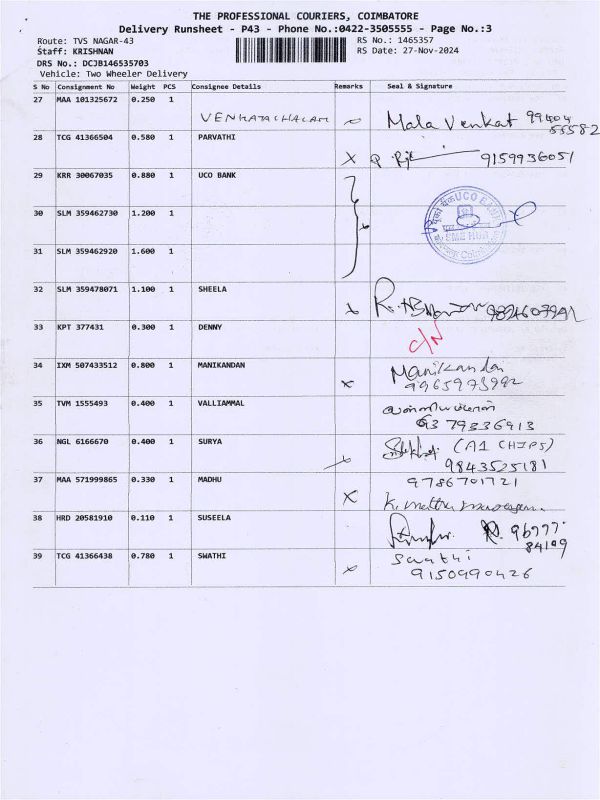 THE PROFESSIONAL COURIERS, COIMBATORE
Delivery Runsheet - P43 - Phone No.:0422-3505555 - Page No.:3
Route: TVS NAGAR-43 RS No.: 1465357
Staff: KRISHNAN RS Date: 27-Nov-2024
DRS No.: DCJB146535703
Vehicle: Two Wheeler Delivery
S No Consignment No Weight PCS Consignee Details Remarks Seal & Signature
27 MAA 101325672 0.250 1 VENKATACHALAM Mala Venkat 99404
55582
28 TCG 41366504 0.580 1 PARVATHI
9159936051
29 KRR 30067035 0.880 1 UCO BANK
UCO BANK
30 SLM 359462730 1.200 1
31 SLM 359462920 1.600 1
32 SLM 359478071 1.100 1 SHEELA
33 KPT 377431 0.300 1 DENNY
C/N
34 IXM 507433512 0.800 1 MANIKANDAN Manikandan
9965973992
35 TVM 1555493 0.400 1 VALLIAMMAL
6379336913
36 NGL 6166670 0.400 1 SURYA (A1 CHIPS)
9843525181
37 MAA 571999865 0.330 1 MADHU 9786701721
38 HRD 20581910 0.110 1 SUSEELA
84109
39 TCG 41366438 0.780 1 SWATHI Swathi
9150990426